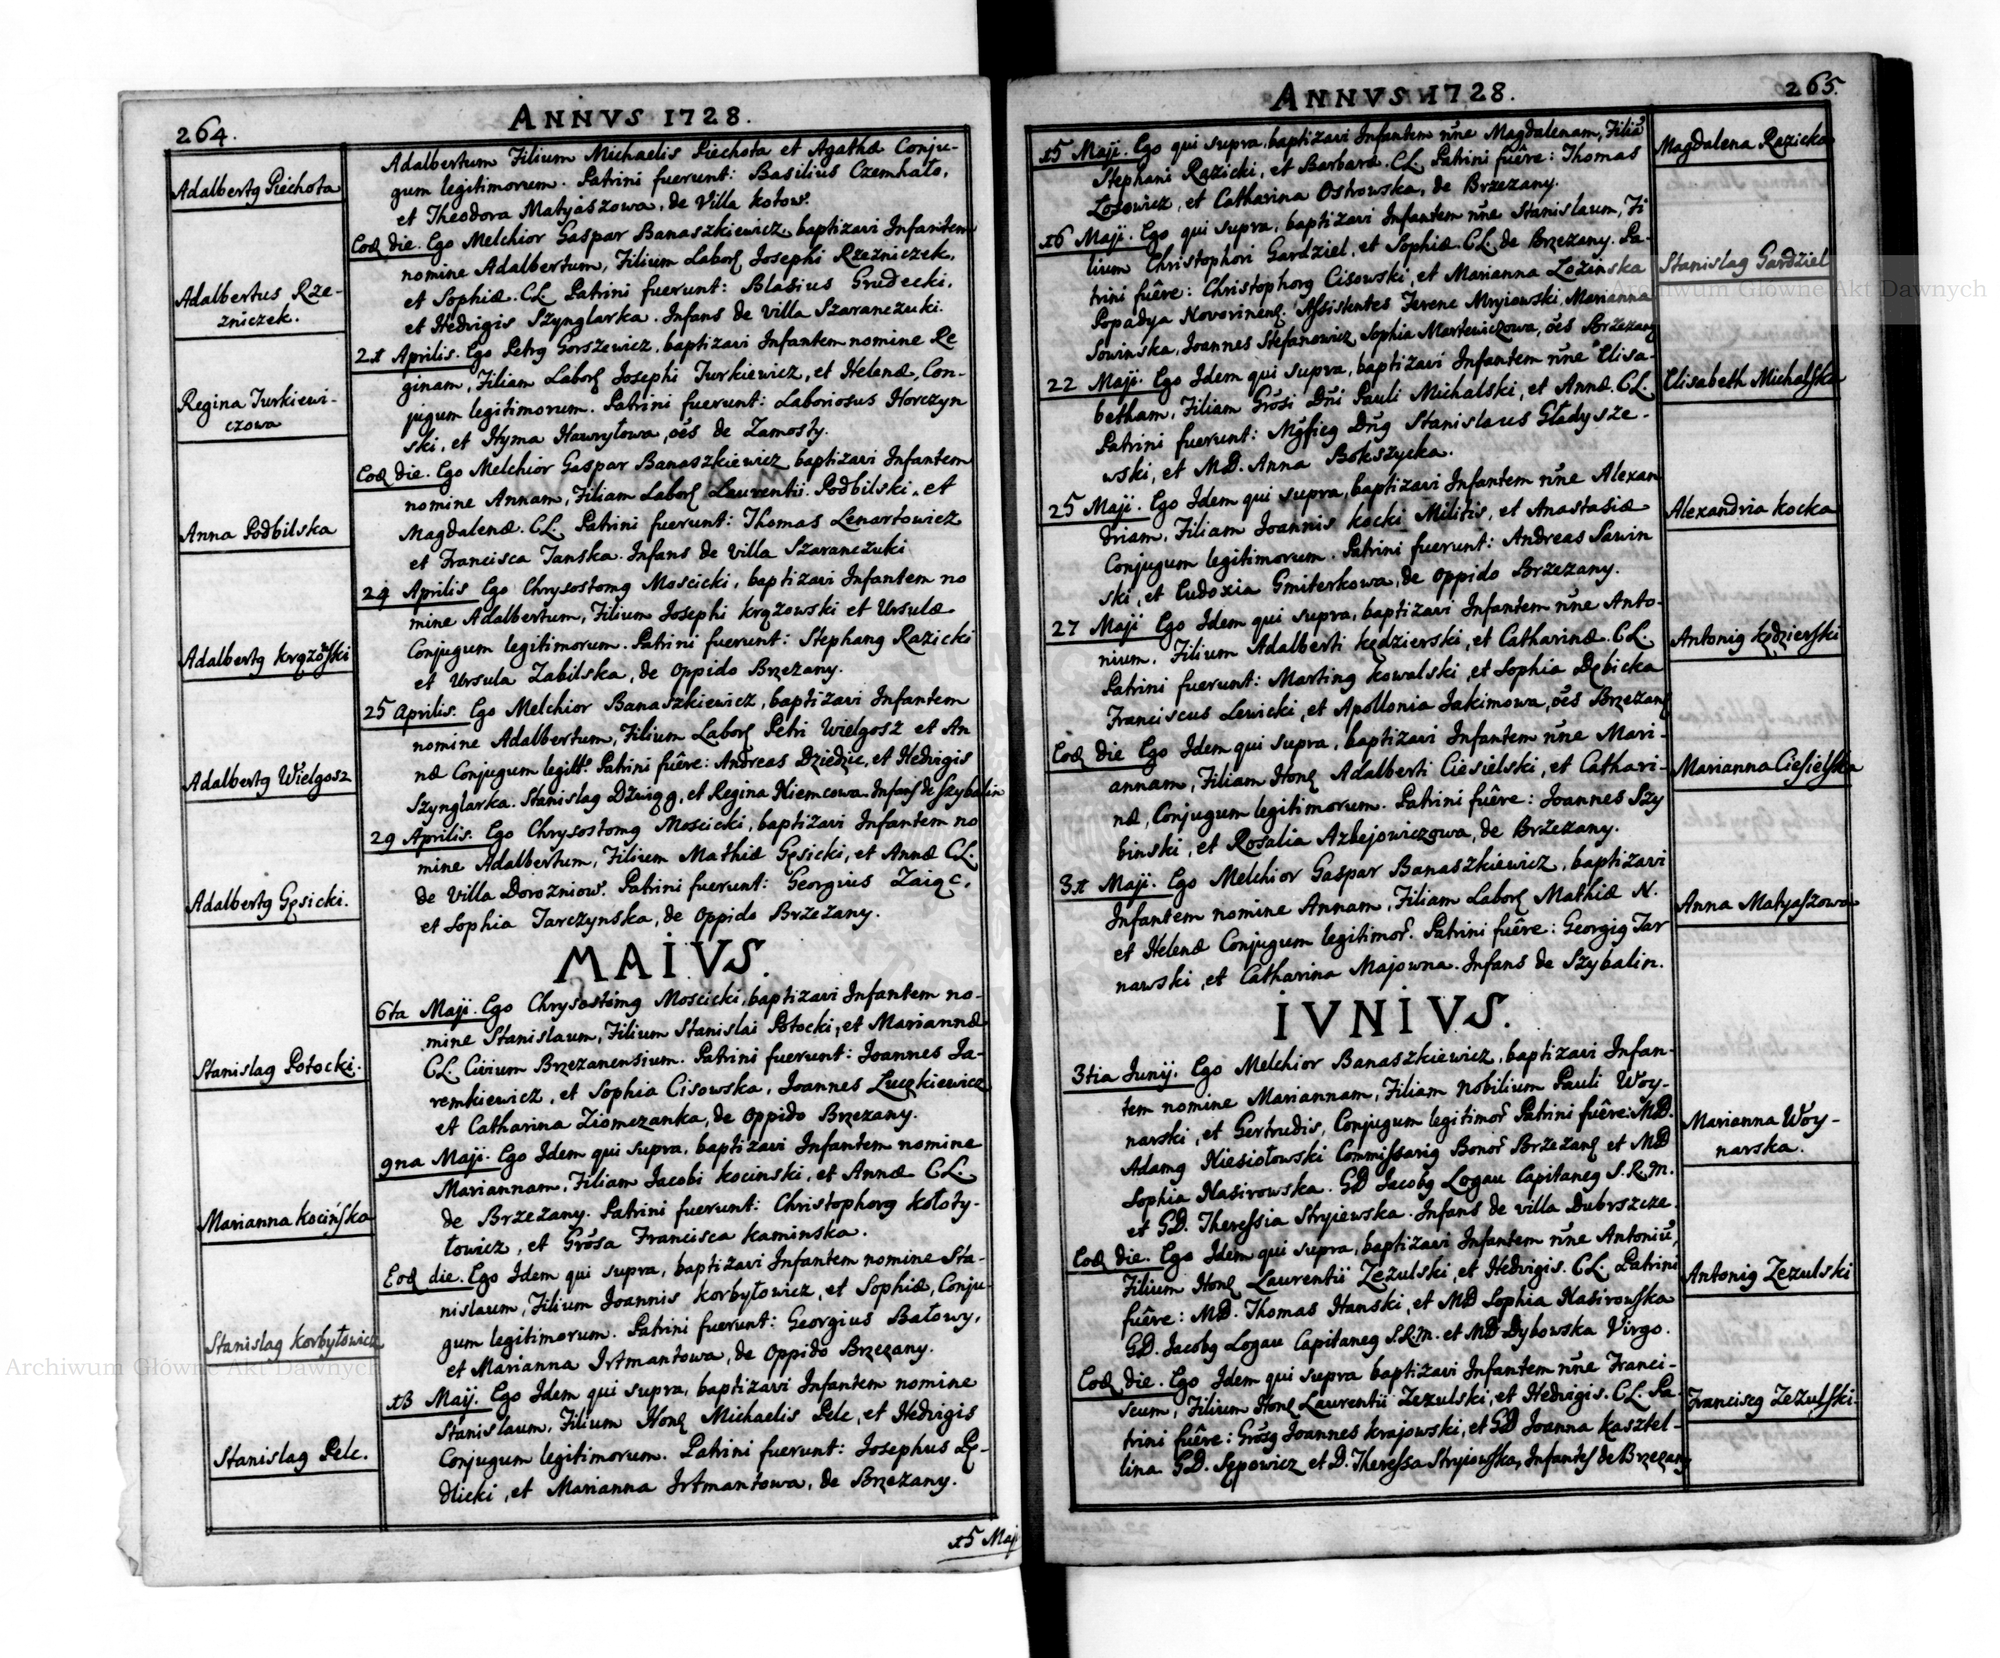 264.
ANNVS 1728.
Adalbertg Piechota
Adalbertum Filium Michaelis Piechota et Agathæ Conju-
gum legitimorum. Patrini fuerunt: Basilius Czemhało,
et Theodora Matyaszowa, de Villa Kotow.
Adalbertus Rze-
zniczek.
Eod die. Ego Melchior Gaspar Banaszkiewicz, baptizavi Infantem
nomine Adalbertum, Filium Labor Josephi Rzezniczek,
et Sophiæ. CL. Patrini fuerunt: Blasius Grudecki,
et Hedvigis Szynglarka. Infans de villa Szaranczuki.
Regina Turkiewi-
czowa
21 Aprilis. Ego Petrg Gorszewicz, baptizavi Infantem nomine Re
ginam, Filiam Labor Josephi Turkiewicz, et Helenæ, Con-
jugum legitimorum. Patrini fuerunt: Laboriosus Horczyn
ski, et Hyma Hawryłowa, oes de Zamosty.
Anna Podbilska
Eod die. Ego Melchior Gaspar Banaszkiewicz baptizavi Infantem
nomine Annam, Filiam Labor Laurentii Podbilski, et
Magdalenæ. CL. Patrini fuerunt: Thomas Lenartowicz
et Francisca Janska. Infans de villa Szaranczuki
Adalbertg Krązowski
24 Aprilis Ego Chrysostomg Moscicki, baptizavi Infantem no
mine Adalbertum, Filium Josephi Krązowski et Ursulæ
Conjugum legitimorum. Patrini fuerunt: Stephang Razicki
et Ursula Zabilska, de Oppido Brzezany.
Adalbertg Wielgosz
25 Aprilis. Ego Melchior Banaszkiewicz, baptizavi Infantem
nomine Adalbertum, Filium Labor Petri Wielgosz et An
næ Conjugum legitt. Patrini fuêre: Andreas Dziedzic, et Hedvigis
Szynglarka. Stanislag Dzwigg, et Regina Niemcowa. Infans de Szybalin
Adalbertg Gęsicki.
29 Aprilis. Ego Chrysostomg Moscicki, baptizavi Infantem no
mine Adalbertum, Filium Mathiæ Gęsicki, et Annæ CL.
de Villa Dorozniow. Patrini fuerunt: Georgius Zaiąc,
et Sophia Tarczynska, de Oppido Brzezany.
MAIVS.
Stanislag Potocki.
6ta Maji. Ego Chrysostomg Moscicki, baptizavi Infantem no-
mine Stanislaum, Filium Stanislai Potocki, et Mariannæ
CL. Civium Brzezanensium. Patrini fuerunt: Joannes Ja-
remkiewicz, et Sophia Cisowska, Joannes Luczkiewicz
et Catharina Ziomezanka, de Oppido Brzezany.
Marianna Kocińska
9na Maji. Ego Idem qui supra, baptizavi Infantem nomine
Mariannam, Filiam Jacobi Kocinski, et Annæ CL.
de Brzezany. Patrini fuerunt: Christophorg Kołoty-
łowicz, et Grosa Francisca Kaminska.
Stanislag Korbyłowicz
Eod die. Ego Idem qui supra, baptizavi Infantem nomine Sta-
nislaum, Filium Joannis Korbyłowicz, et Sophiæ, Conju-
gum legitimorum. Patrini fuerunt: Georgius Batowy,
et Marianna Irtmantowa, de Oppido Brzezany.
Stanislag Pelc.
13 Maij. Ego Idem qui supra, baptizavi Infantem nomine
Stanislaum, Filium Hon Michaelis Pelc, et Hedvigis
Conjugum legitimorum. Patrini fuerunt: Josephus Pę-
dlicki, et Marianna Irtmantowa, de Brzezany.
15 Maj
ANNVS 1728.
265.
15 Maji. Ego qui supra, baptizavi Infantem nne Magdalenam, Filiā
Stephani Razicki, et Barbaræ. CL. Patrini fuêre: Thomas
Losowicz, et Catharina Ostrowska, de Brzezany.
Magdalena Razicka
16 Maji. Ego qui supra, baptizavi Infantem nne Stanislaum, Fi
lium Christophori Gardziel, et Sophiæ. CL. de Brzezany. Pa-
trini fuêre: Christophorg Cisowski, et Marianna Lozinska
Popadya Novorinen. Assistentes Ferenc Mryiowski, Marianna
Sowinska, Joannes Stefanowicz, Sophia Martewiczowa, oes Brzezany
Stanislag Gardziel
22 Maji. Ego Idem qui supra, baptizavi Infantem nne Elisa-
betham, Filiam Grosi Dni Pauli Michalski, et Annæ. CL.
Patrini fuerunt: Mgficg Dng Stanislaus Gladysze-
wski, et MD. Anna Bokszycka.
Elisabeth Michalska
25 Maji. Ego Idem qui supra, baptizavi Infantem nne Alexan
driam, Filiam Joannis Kocki Militis, et Anastasiæ
Conjugum legitimorum. Patrini fuerunt: Andreas Sawin
ski, et Eudoxia Gmiterkowa, de Oppido Brzezany.
Alexandria Kocka
27 Maji Ego Idem qui supra, baptizavi Infantem nne Anto-
nium, Filium Adalberti Kędzierski, et Catharinæ. CL.
Patrini fuerunt: Marting Kowalski, et Sophia Dębicka
Franciscus Lewicki, et Apollonia Jakimowa, oes Brzezany
Antonig Kędzierski
Eod die Ego Idem qui supra, baptizavi Infantem nne Mari-
annam, Filiam Hon Adalberti Ciesielski, et Cathari-
næ, Conjugum legitimorum. Patrini fuêre: Joannes Szy
binski, et Rosalia Azbejowiczowa, de Brzezany.
Marianna Ciesielska
31 Maji. Ego Melchior Gaspar Banaszkiewicz, baptizavi
Infantem nomine Annam, Filiam Labor Mathiæ N.
et Helenæ Conjugum legitimor. Patrini fuêre: Georgig Tar
nawski, et Catharina Majowna. Infans de Szybalin.
Anna Matyaszowa
IVNIVS.
3tia Junij. Ego Melchior Banaszkiewicz, baptizavi Infan-
tem nomine Mariannam, Filiam Nobilium Pauli Woy-
narski, et Gertrudis, Conjugum legitimor Patrini fuêre: MD.
Adamg Niesiołowski Commissarig Bonor Brzezan et MD
Sophia Nasirowska. GD Jacobg Logau Capitaneg S.R.M.
et GD. Theressia Stryiewska. Infans de villa Dubrszcze.
Marianna Woy-
narska.
Eod die. Ego Idem qui supra, baptizavi Infantem nne Antoniū,
Filium Hon Laurentii Zezulski, et Hedvigis. CL. Patrini
fuêre: MD. Thomas Hanski, et MD Sophia Nasirowska
GD. Jacobg Logau Capitaneg S.R.M. et MD Dybowska Virgo.
Antonig Zezulski
Eod die. Ego Idem qui supra baptizavi Infantem nne Franci-
scum, Filium Hon Laurentii Zezulski, et Hedvigis. CL. Pa-
trini fuêre: Grosg Joannes Krajowski, et GD Joanna Kasztel-
lina. GD. Sępowicz et D. Theressa Stryiowska, Infantes de Brzezany
Franciscg Zezulski.
Archiwum Główne Akt Dawnych
Archiwum Główne Akt Dawnych